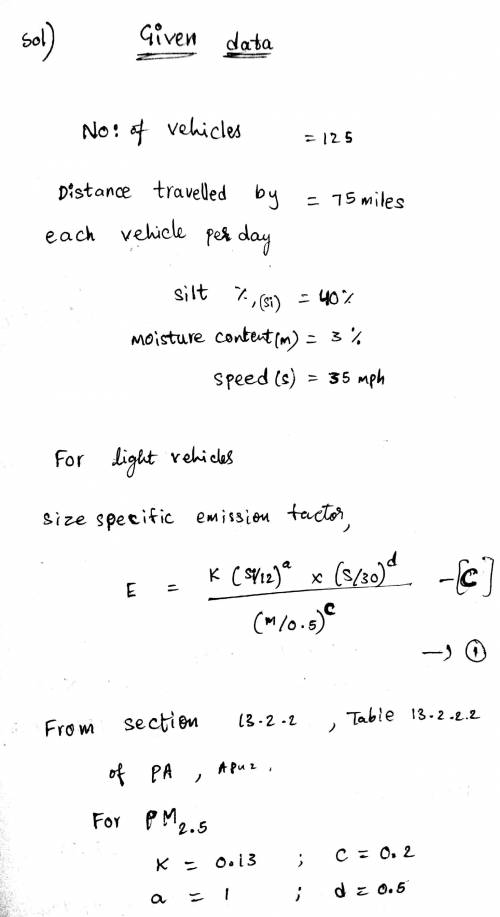 Sol) Given data
No: of vehicles = 125
Distance travelled by = 75 miles
each vehicle per day
silt %, (si) = 40%
moisture content (m) = 3%
speed (s) = 35 mph
For light vehicles
size specific emission factor,
E = K (si/12)^a × (S/30)^d / (M/0.5)^c - [C]
→ ①
From section 13.2.2, Table 13.2.2.2
of PA,
For PM2.5
K = 0.13 ; C = 0.2
a = 1 ; d = 0.5